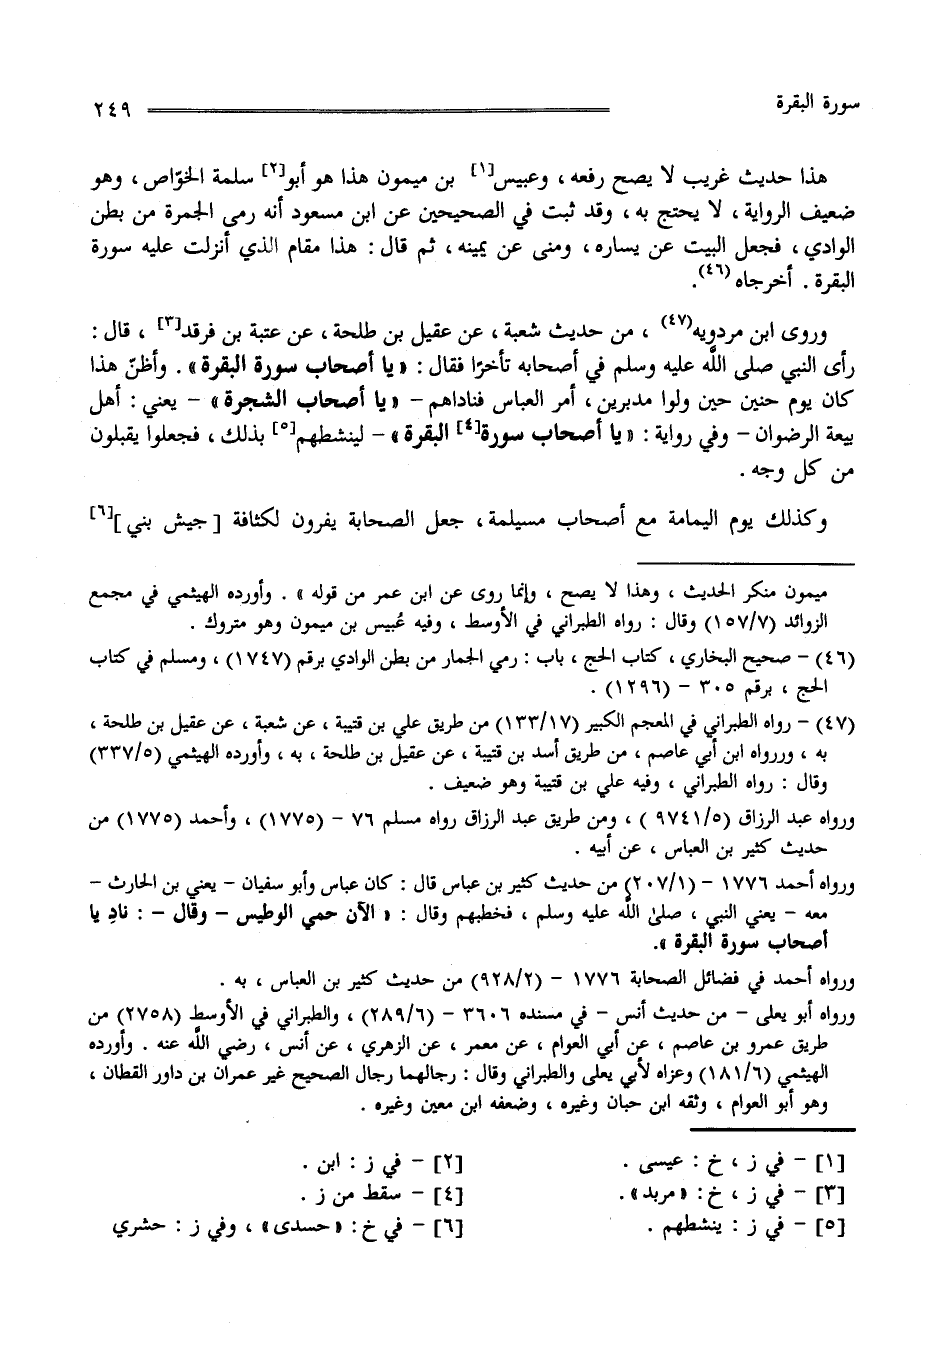 سورة البقرة ٢٤٩
هذا حديث غريب لا يصح رفعه ، وعبيس[١] بن ميمون هذا هو أبو[٢] سلمة الخوّاص ، وهو
ضعيف الرواية ، لا يحتج به ، وقد ثبت في الصحيحين عن ابن مسعود أنه رمى الجمرة من بطن
الوادي ، فجعل البيت عن يساره ، ومنى عن يمينه ، ثم قال : هذا مقام الذي أنزلت عليه سورة
البقرة . أخرجاه(٤٦).
وروى ابن مردويه(٤٧) ، من حديث شعبة ، عن عقيل بن طلحة ، عن عتبة بن فرقد[٣] ، قال :
رأى النبي صلى اللَّه عليه وسلم في أصحابه تأخرًا فقال : « يا أصحاب سورة البقرة » . وأظنّ هذا
كان يوم حنين حين ولوا مدبرين ، أمر العباس فناداهم – « يا أصحاب الشجرة » – يعني : أهل
بيعة الرضوان – وفي رواية : « يا أصحاب سورة[٤] البقرة » – لينشطهم[٥] بذلك ، فجعلوا يقبلون
من كل وجه .
وكذلك يوم اليمامة مع أصحاب مسيلمة ، جعل الصحابة يفرون لكثافة [ جيش بني ][٦]
ميمون منكر الحديث ، وهذا لا يصح ، وإنما روى عن ابن عمر من قوله » . وأورده الهيثمي في مجمع
الزوائد (١٥٧/٧) وقال : رواه الطبراني في الأوسط ، وفيه عُبيس بن ميمون وهو متروك .
(٤٦) – صحيح البخاري ، كتاب الحج ، باب : رمي الجمار من بطن الوادي برقم (١٧٤٧) ، ومسلم في كتاب
الحج ، برقم ٣٠٥ – (١٢٩٦) .
(٤٧) – رواه الطبراني في المعجم الكبير (١٣٣/١٧) من طريق علي بن قتيبة ، عن شعبة ، عن عقيل بن طلحة ،
به ، وررواه ابن أبي عاصم ، من طريق أسد بن قتيبة ، عن عقيل بن طلحة ، به ، وأورده الهيثمي (٣٣٧/٥)
وقال : رواه الطبراني ، وفيه علي بن قتيبة وهو ضعيف .
ورواه عبد الرزاق (٩٧٤١/٥ ) ، ومن طريق عبد الرزاق رواه مسلم ٧٦ – (١٧٧٥) ، وأحمد (١٧٧٥) من
حديث كثير بن العباس ، عن أبيه .
ورواه أحمد ١٧٧٦ – (٢٠٧/١) من حديث كثير بن عباس قال : كان عباس وأبو سفيان – يعني بن الحارث –
معه – يعني النبي ، صلىٰ اللَّه عليه وسلم ، فخطبهم وقال : « الآن حمي الوطيس – وقال – : نادِ يا
أصحاب سورة البقرة ».
ورواه أحمد في فضائل الصحابة ١٧٧٦ – (٩٢٨/٢) من حديث كثير بن العباس ، به .
ورواه أبو يعلى – من حديث أنس – في مسنده ٣٦٠٦ – (٢٨٩/٦) ، والطبراني في الأوسط (٢٧٥٨) من
طريق عمرو بن عاصم ، عن أبي العوام ، عن معمر ، عن الزهري ، عن أنس ، رضي اللَّه عنه . وأورده
الهيثمي (١٨١/٦) وعزاه لأبي يعلى والطبراني وقال : رجالهما رجال الصحيح غير عمران بن داور القطان ،
وهو أبو العوام ، وثقه ابن حبان وغيره ، وضعفه ابن معين وغيره .
[١] – في ز ، خ : عيسى . [٢] – في ز : ابن .
[٣] – في ز ، خ : «مربد» . [٤] – سقط من ز .
[٥] – في ز : ينشطهم . [٦] – في خ : «حسدى» ، وفي ز : حشري